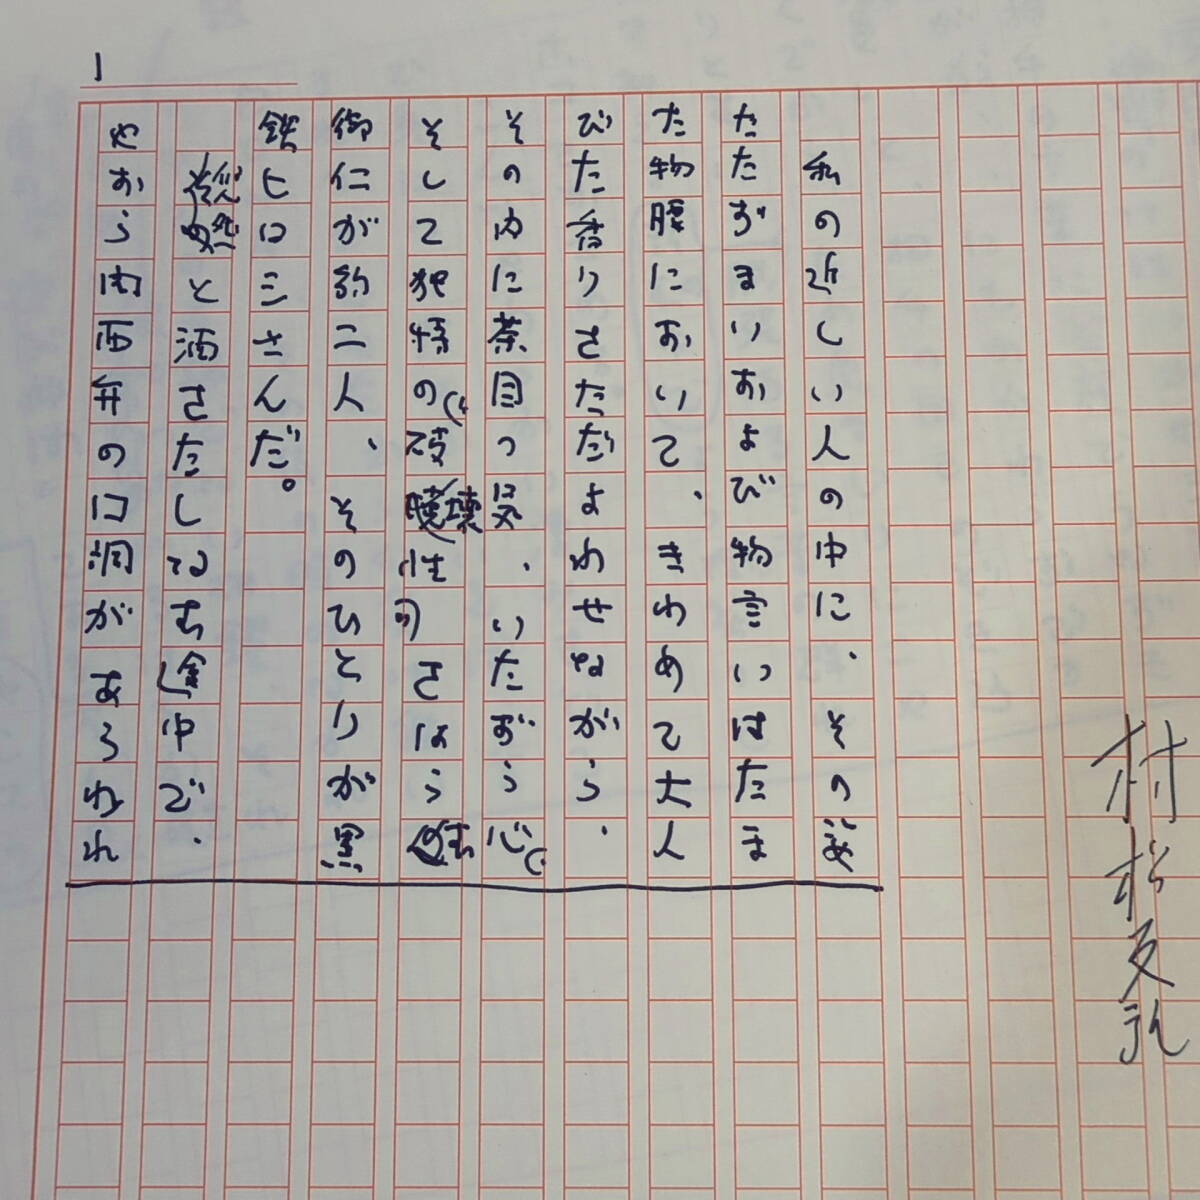 1
村松友視
私の近しい人の中に、その姿
たたずまいおよび物言いはたま
た物腰において、きわめて大人
びた香りをただよわせながら、
その内に茶目っ気、いたずら心、
そして独特の破壊性をはらむ
御仁が約二人、そのひとりが黒
鉄ヒロシさんだ。
悠然と酒をたしなむ途中で、
やおら関西弁の口調があらわれ